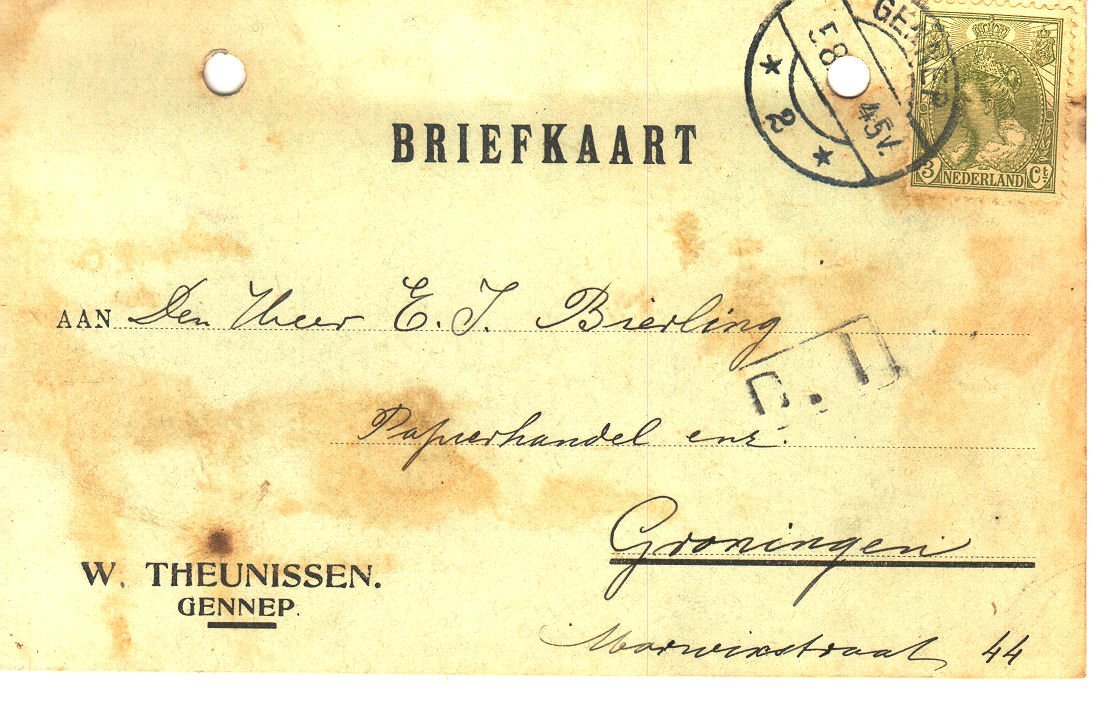 BRIEFKAART
5.8 45V.
2
3 NEDERLAND Ct
AAN Den Heer E. J. Bierling
Papierhandel enz.
Groningen
W. THEUNISSEN.
GENNEP.
Marwixstraat 44